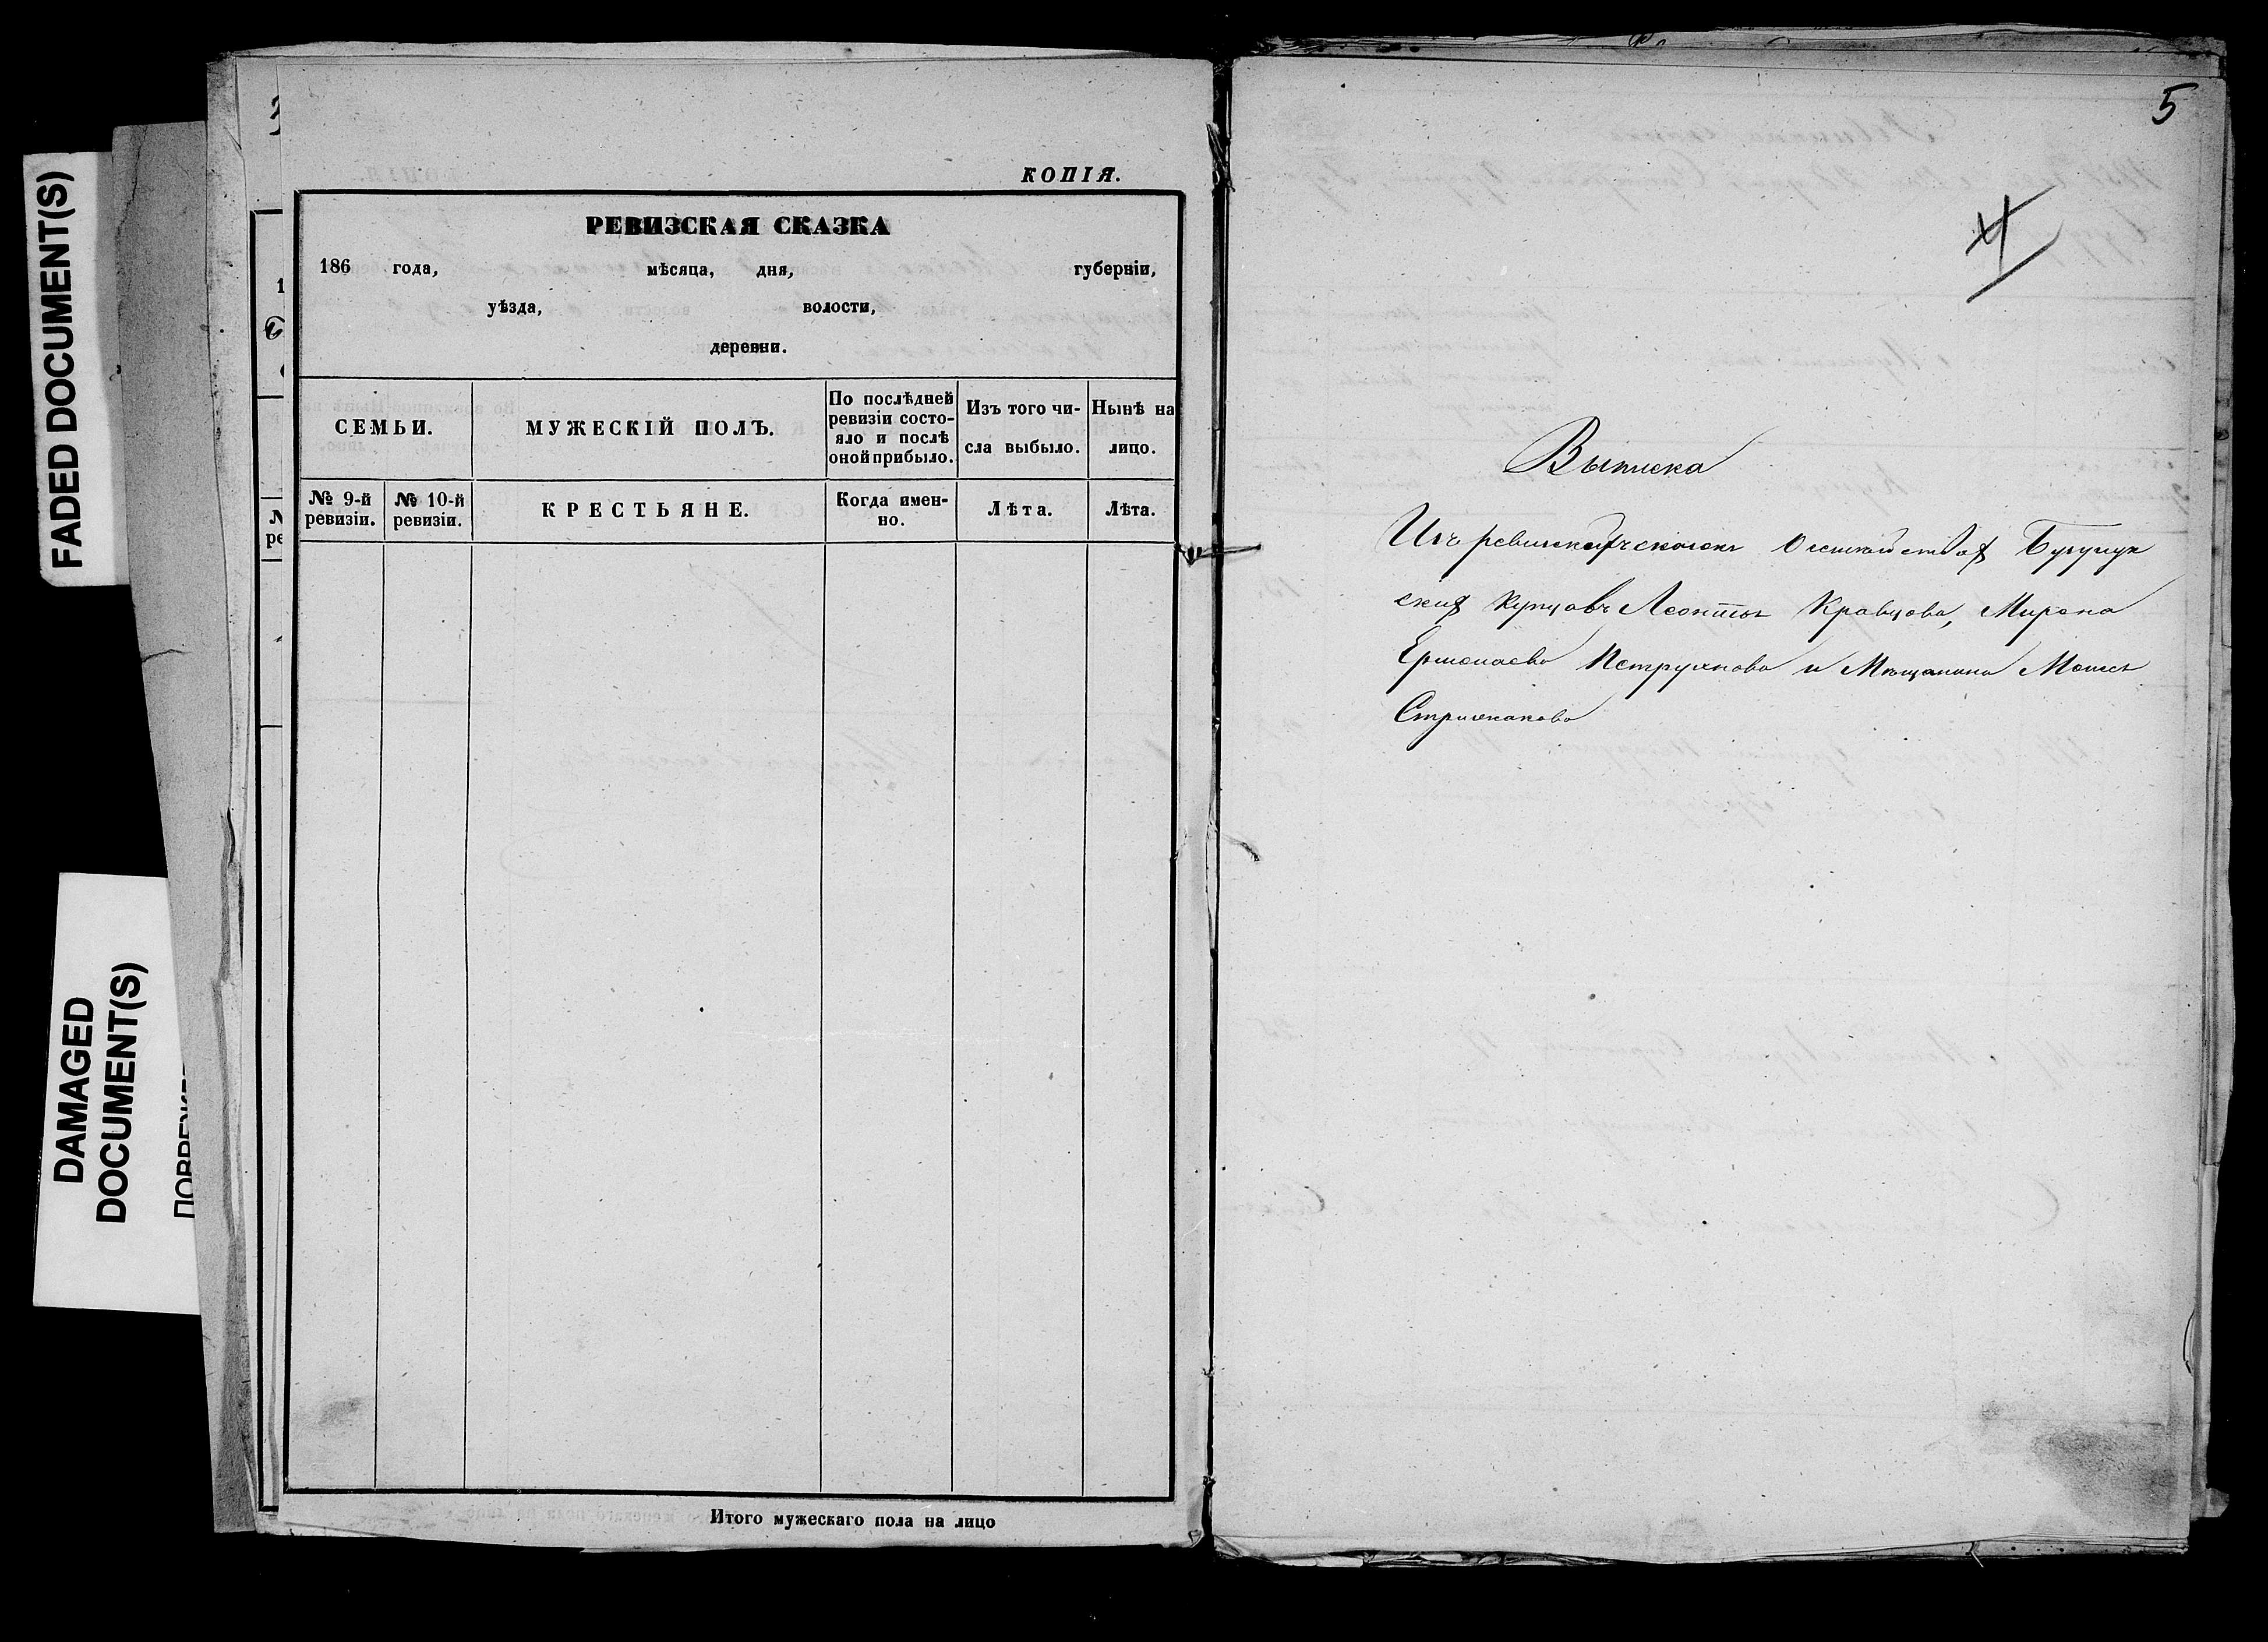 FADED DOCUMENT(S)
DAMAGED
DOCUMENT(S)
КОПІЯ.
РЕВИЗСКАЯ СКАЗКА
186 года, мѣсяца, дня, губерніи,
уѣзда, волости,
деревни.
СЕМЬИ.
МУЖЕСКІЙ ПОЛЪ.
По послѣдней
ревизіи состо-
яло и послѣ
оной прибыло.
Изъ того чи-
сла выбыло.
Нынѣ на
лицо.
№ 9-й
ревизіи.
№ 10-й
ревизіи.
КРЕСТЬЯНЕ.
Когда имен-
но.
Лѣта.
Лѣта.
Итого мужескаго пола на лицо
5
4
Выписка
Изъ ревизскихъ сказокъ о семействахъ Бугурус
скихъ купцовъ Леонтія Кравцова, Мирона
Ермолаева и Мѣщанина